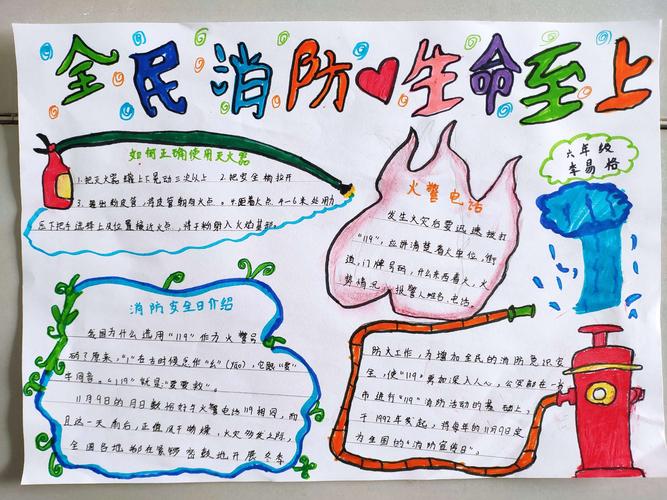 全民消防生命至上
如何正确使用灭火器
1.把灭火器罐上下晃动三次以上 2.把安全栓拉开
3.提出粉皮管,将皮管朝向火点。4.距着火点4-6米处用力
压下把手选择上风位置接近火点,将干粉射入火焰基部。
火警电话
发生火灾后要迅速拨打
"119",应讲清楚着火单位,街
道,门牌号码,什么东西着火,火
势情况,报警人姓名,电话。
六年级
李易格
消防安全日介绍
我国为什么选用"119"作为火警号
动了原来,"1"在古时候念作"幺"(yāo),它跟"要"
字同音。"119"就是"要要救"。
11月9日的月日数恰好与火警电话119相同,而
且这一天前后,正值风干物燥,火灾多发之际,
全国各地都在紧锣密鼓地开展冬季
防火工作,为增加全民的消防意识安
全,使"119"更加深入人心,公安部在一些省
市进行"119"消防活动的基础上,
于1992年发起,将每年的11月9日定
为全国的"消防宣传日"。